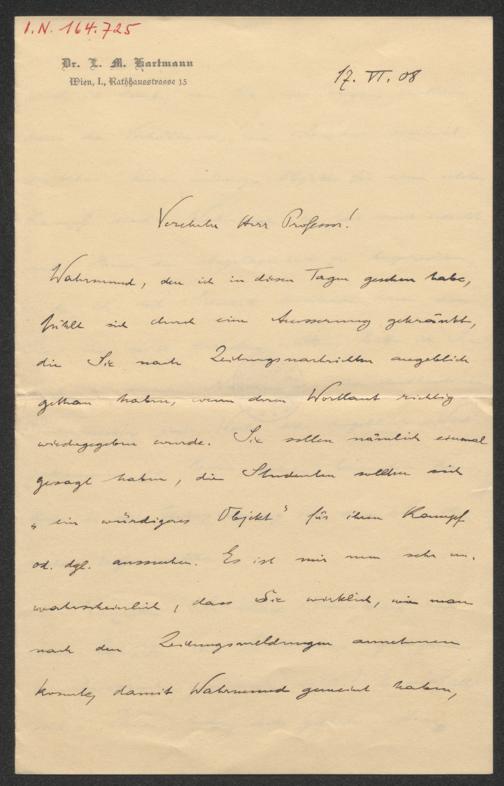 I.N. 164.725
Dr. L. M. Hartmann
Wien, I., Rathhausstrasse 15
17. VI. 08
Verehrter Herr Professor!
Wahrmund, den ich in diesen Tagen gesehen habe,
fühlt sich durch eine Äusserung gekränkt,
die Sie nach Zeitungsnachrichten angeblich
gethan haben, wenn deren Wortlaut richtig
wiedergegeben wurde. Sie sollen nämlich einmal
gesagt haben, die Studenten sollten sich
„ein würdigeres Objekt" für ihren Kampf
od. dgl. aussuchen. Es ist mir nun sehr un-
wahrscheinlich, dass Sie wirklich, wie man
nach den Zeitungsmeldungen annehmen
konnte, damit Wahrmund gemeint haben,